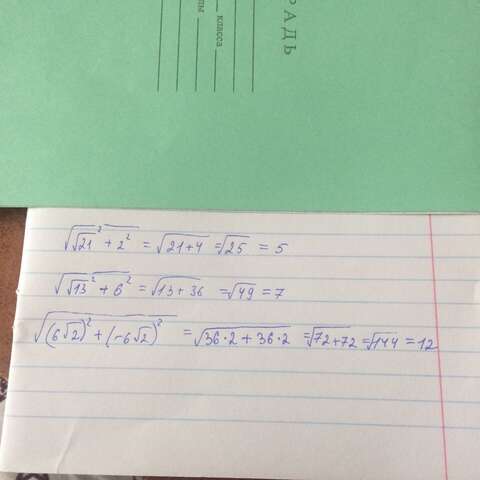 РАДЬ
класса
√(√21² + 2²) = √(21+4) = √25 = 5
√(√13² + 6²) = √(13+36) = √49 = 7
√((6√2)² + (-6√2)²) = √(36·2 + 36·2) = √(72+72) = √144 = 12